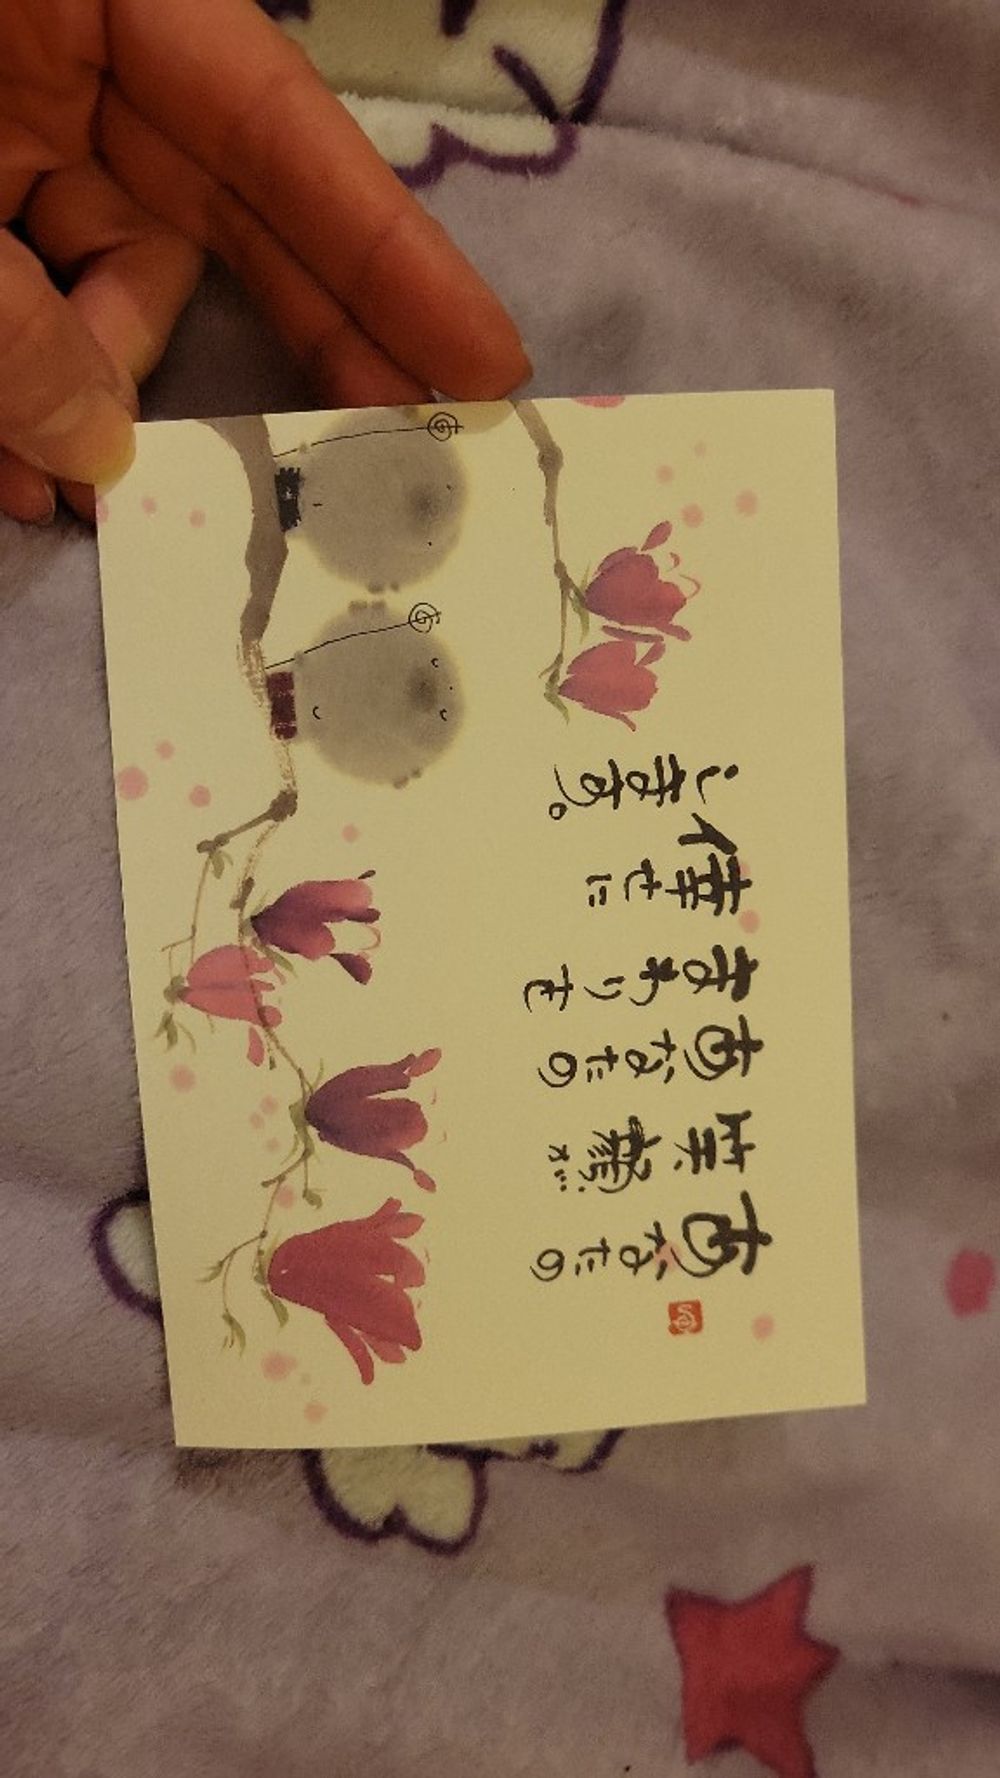 あなたの
笑顔が
あなたの
まわりを
倖せに
します。